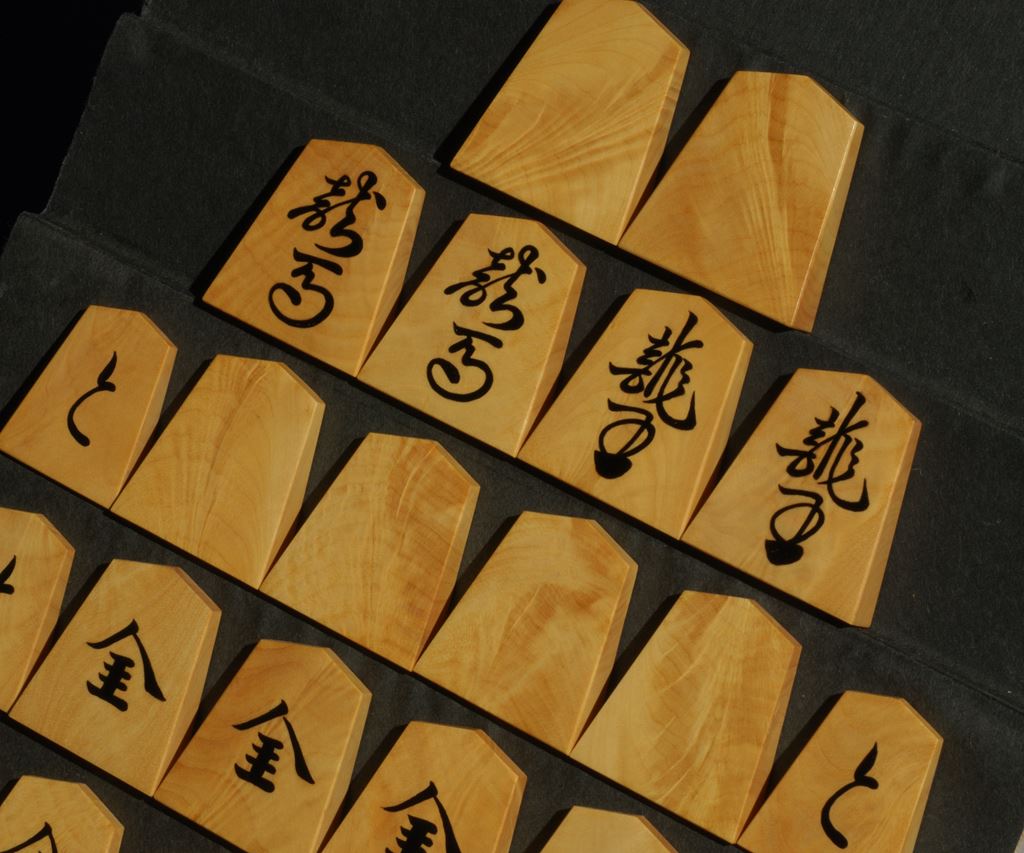 龍馬
龍馬
龍王
龍王
と
と
金
金
金